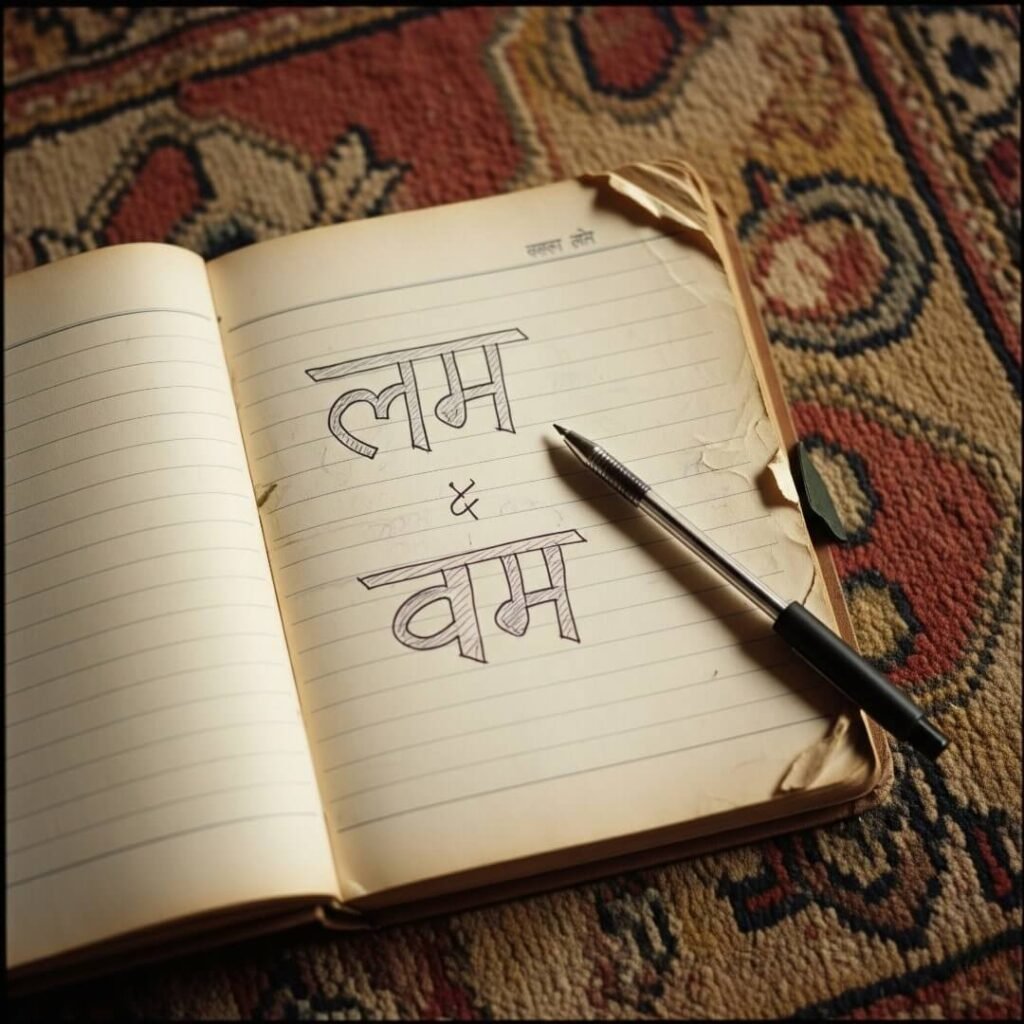 लम
&
वम